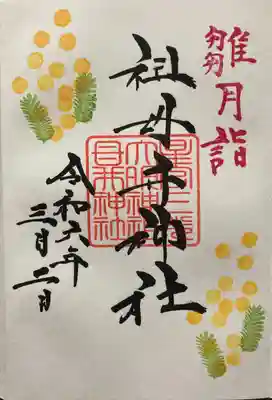 雛月詣
祖母井神社
令和六年
三月二日